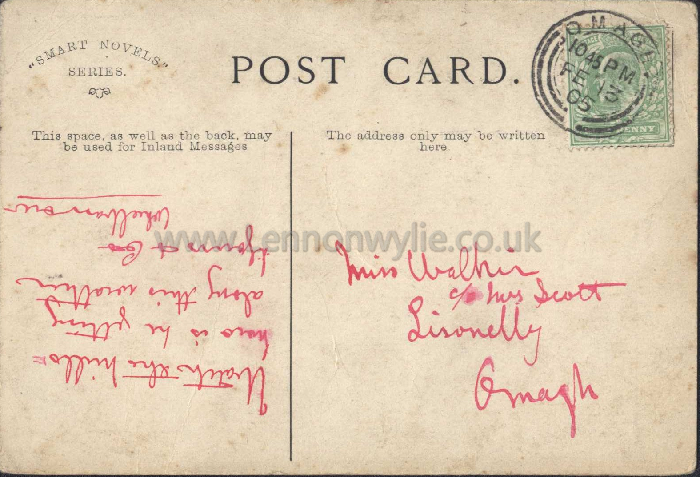 "SMART NOVELS"
SERIES.
POST CARD.
OMAGH
10 45 PM
FE 13
05
PENNY
This space, as well as the back, may
be used for Inland Messages
The address only may be written
here
www.lennonwylie.co.uk
Miss Walkin
c/o Mrs Scott
Lisonelly
Omagh
the hills
how is he getting
along this weather
Yours &